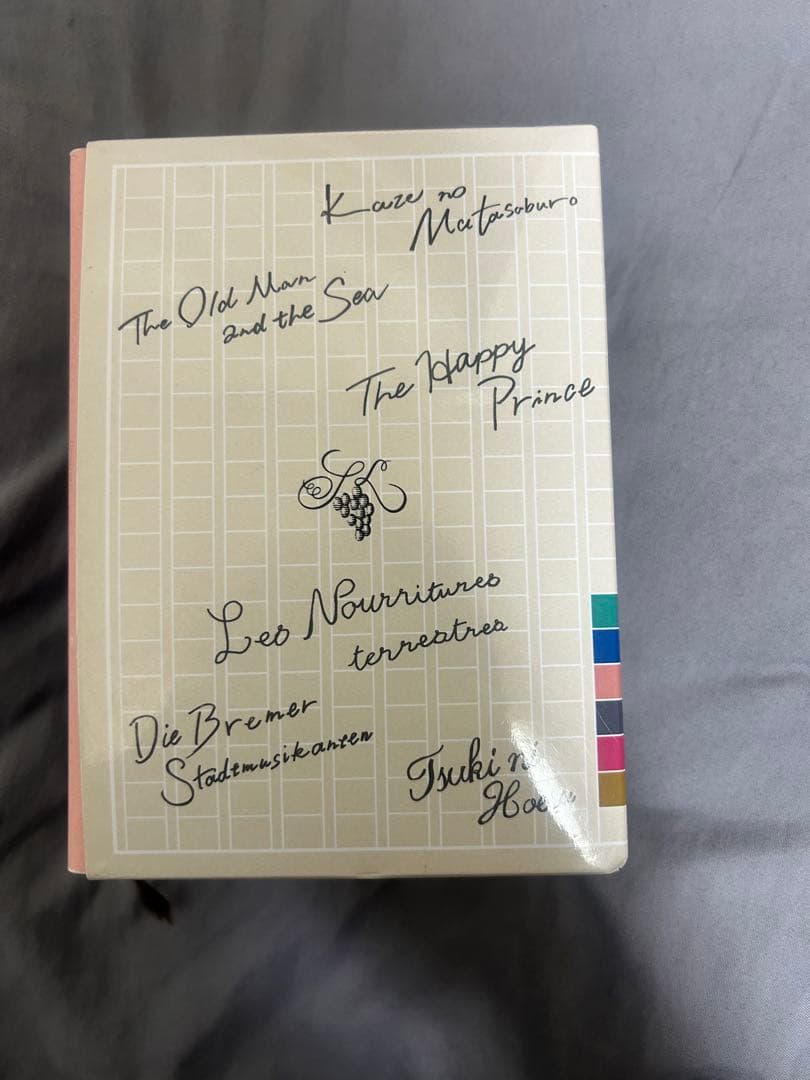 Kaze no
Matasaburo
The Old Man
and the Sea
The Happy
Prince
SK
Les Nourritures
terrestres
Die Bremer
Stadtmusikanten
Tsuki ni